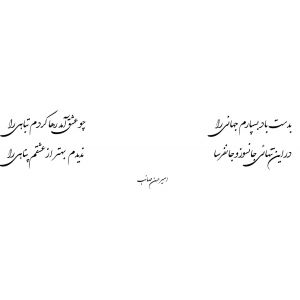 بدست باد بسپارم جهانی را
چو عشق آمد رها کردم تباهی را
در این تنهائی جانسوز و جانفرسا
ندیدم بهتر از عشقم پناهی را
امیرحسان صائب